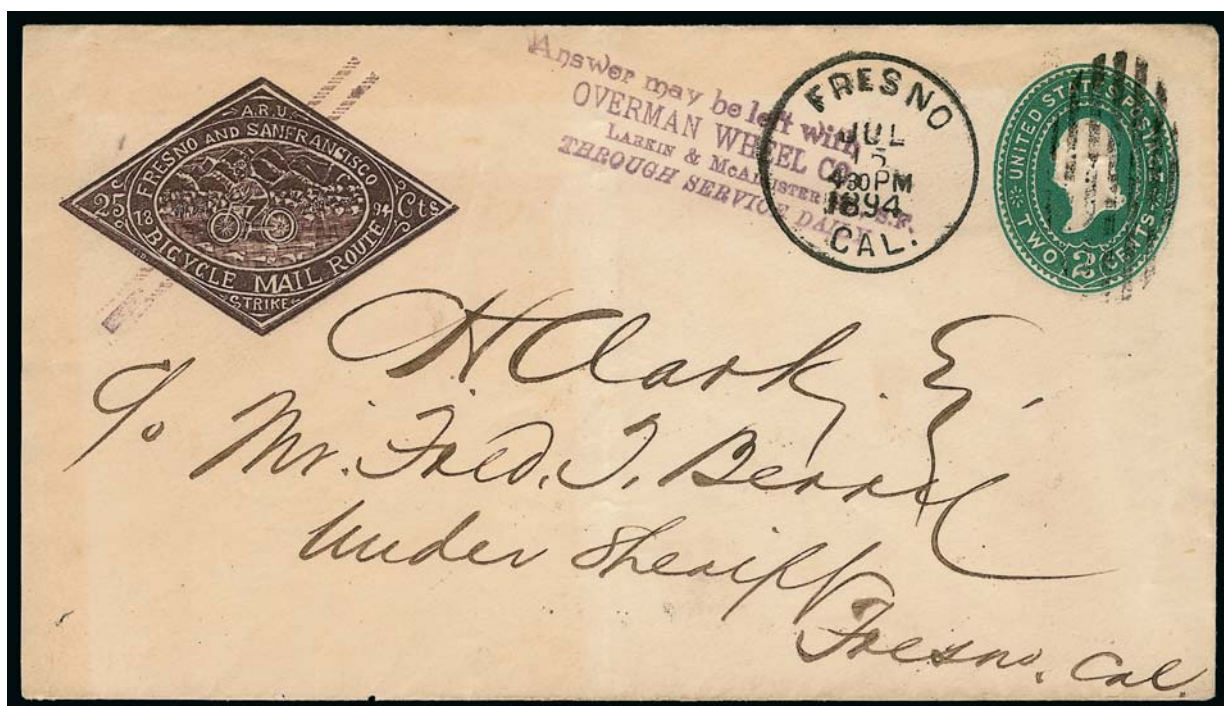 A.R.U.
FRESNO AND SANFRANCISCO
25 Cts
18 94
BICYCLE MAIL ROUTE
STRIKE
Answer may be left with
OVERMAN WHEEL CO.
LARKIN & McALLISTER S.F.
THROUGH SERVICE DAILY
FRESNO
JUL
15
4 30 PM
1894
CAL.
UNITED STATES POSTAGE
TWO 2 CENTS
H Clark. E.
c/o Mr. Fred. T. Berral
Under Sheriff
Fresno. Cal.